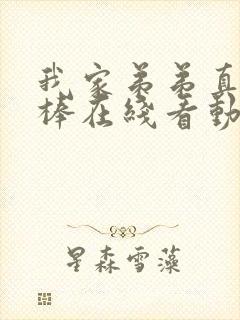 我家弟弟真
棒在线看動
星森雪藻